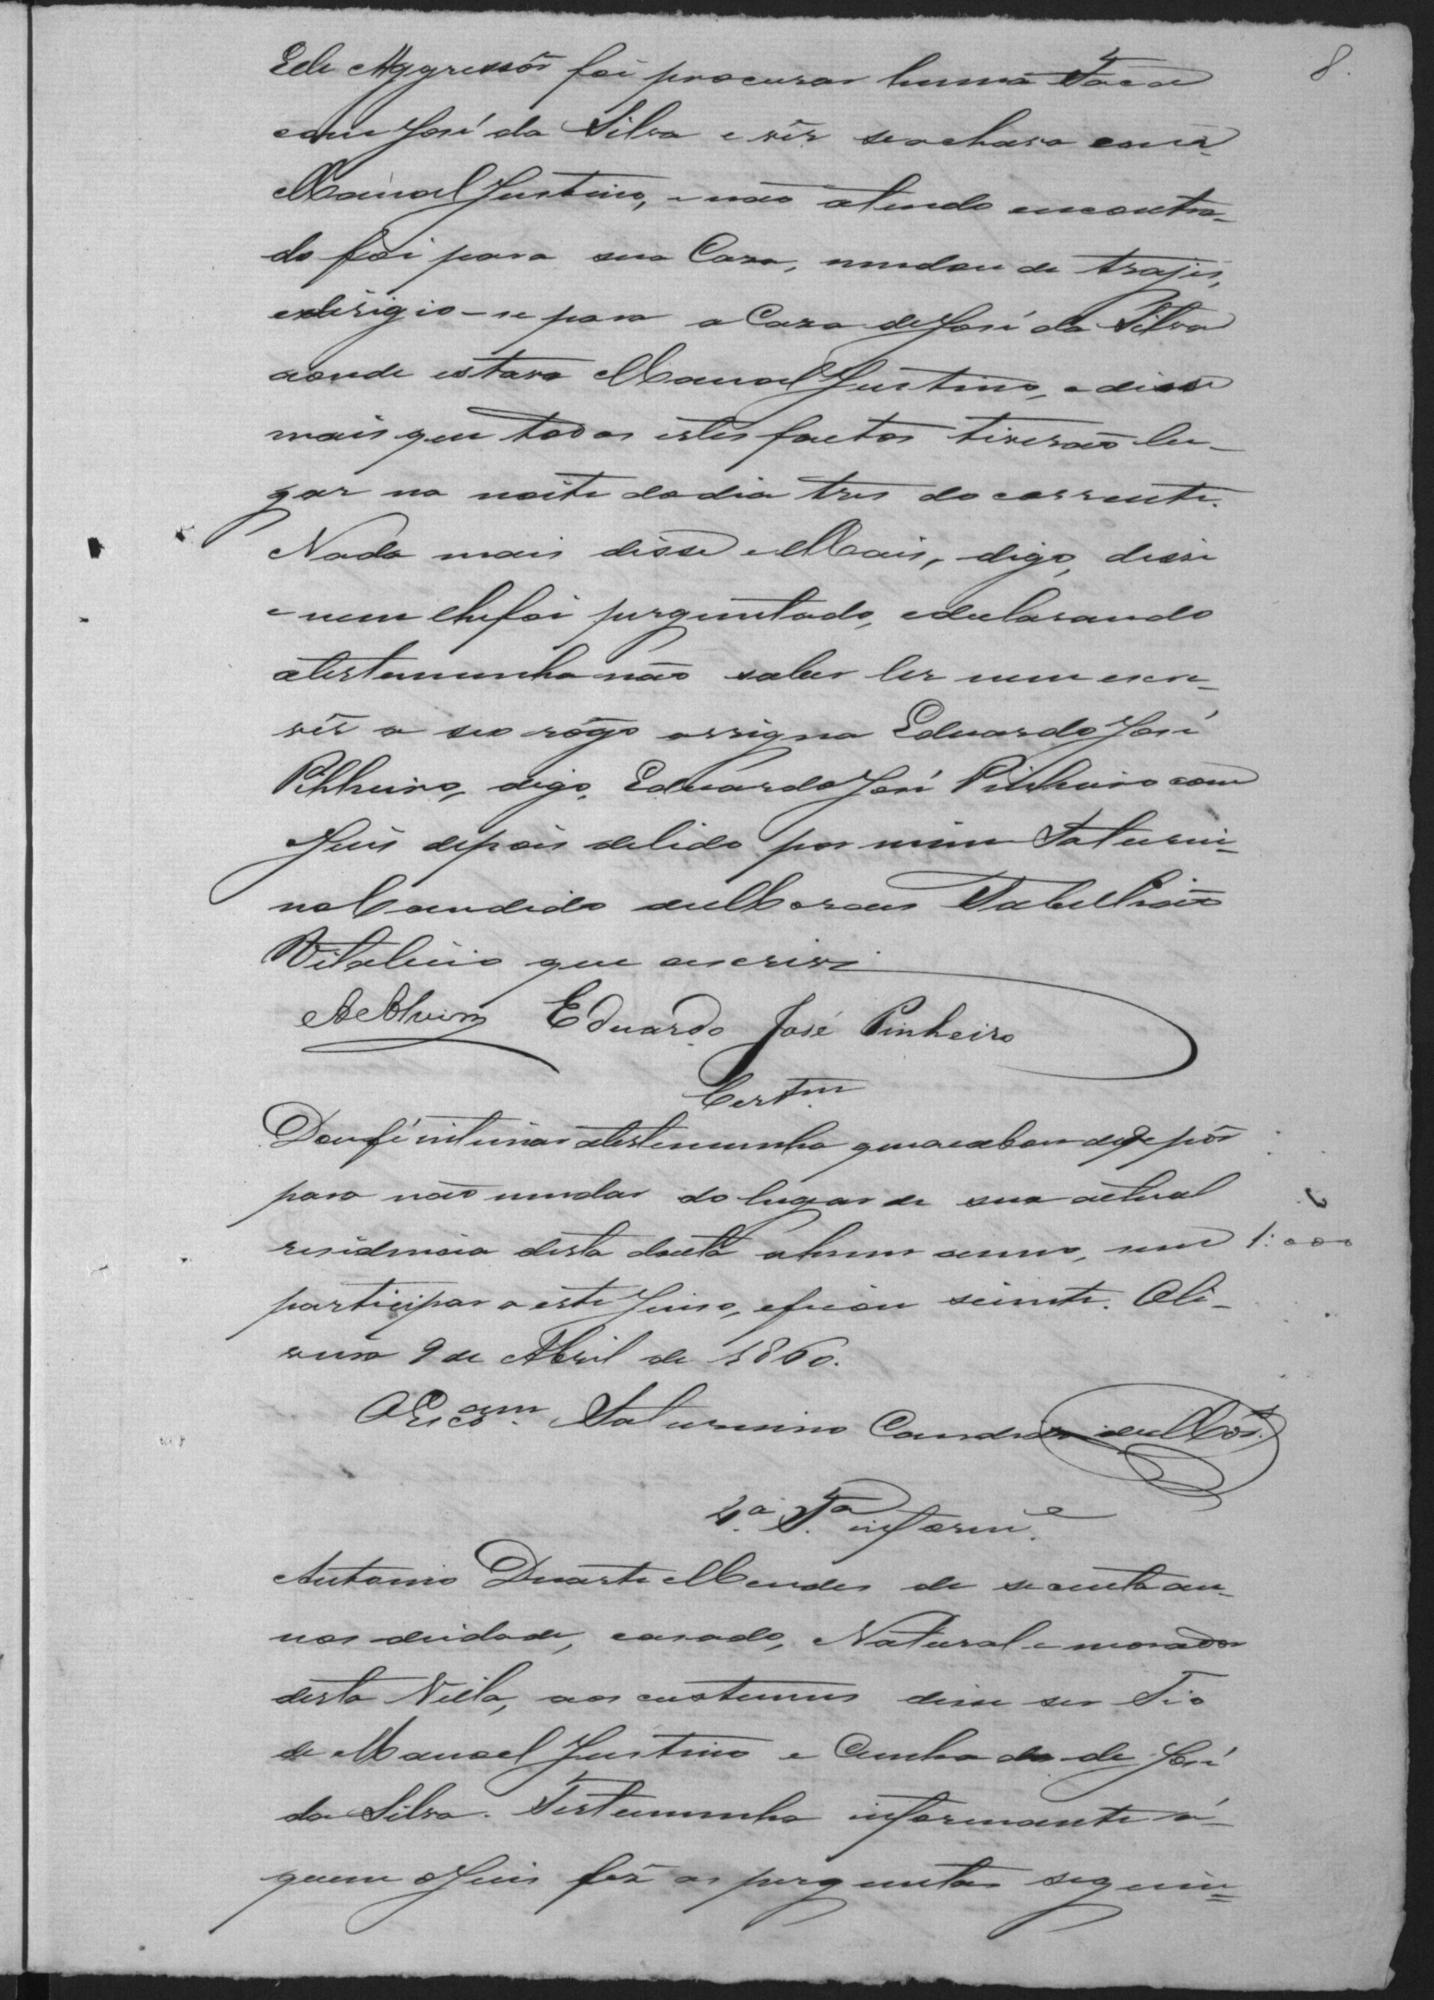 8.
Ede Aggressôr foi procurar huma Faca
com José da Silva e vêr se achava com
Manoel Justino, e não atendo encontra-
do foi para sua Caza, mudou de trajes,
edirigio-se para a Caza de José da Silva
aonde estava Manoel Justino, e disse
mais que todos estes factos tiverão lu-
gar na noite do dia tres do corrente.
Nada mais disse e Mais, digo, disse
e nem lhe foi perguntado, edeclarando
atestemunha não saber ler nem escre-
vêr a seo rôgo assigna Eduardo José
Pihheiro, digo, Eduardo José Pinheiro com
Juis depois delido por mim Saturni-
no Candido de Moraes Tabellião
Vitalicio que escrivi
Eduardo José Pinheiro
Certm
Dou fé intimar atestemunha que acabou de depôr
para não mudar do lugar de sua actual
residencia desta dacta ahum anno, sem 1:000
participar a este Juiso, eficou sciente. Oli-
veira 9 de Abril de 1860.
O Escam. Saturnino Candido de Mos.
4.a T.a inform.e
Antonio Duarte Mendes de secenta an-
nos deidade, casado, Natural e morador
desta Villa, aos custumes disse ser Tio
de Manoel Justino e Cunhado de José
da Silva. Testemunha informante á
quem o Juis fez as perguntas seguin-